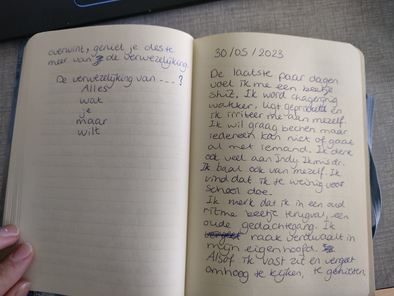 overwint, geniet je des te
meer van de verwezelijking.
De verwezelijking van ---?
Alles
wat
je
maar
wilt
30/05/2023
De laatste paar dagen
voel ik me een beetje
shit. Ik word chagrijnig
wakker, ligt geprikkeld en
ik irriteer me aan mezelf.
Ik wil graag bellen maar
iedereen kan niet of gaat
al met iemand. Ik denk
ook veel aan Indy
Ik baal ook van mezelf. Ik
vind dat ik te weinig voor
school doe.
Ik merk dat ik in een oud
ritme beetje terugval, een
oude gedachtegang. Ik
raak verdwaalt in
mijn eigen hoofd.
Alsof ik vast zit en vergeet
omhoog te kijken, te genieten.